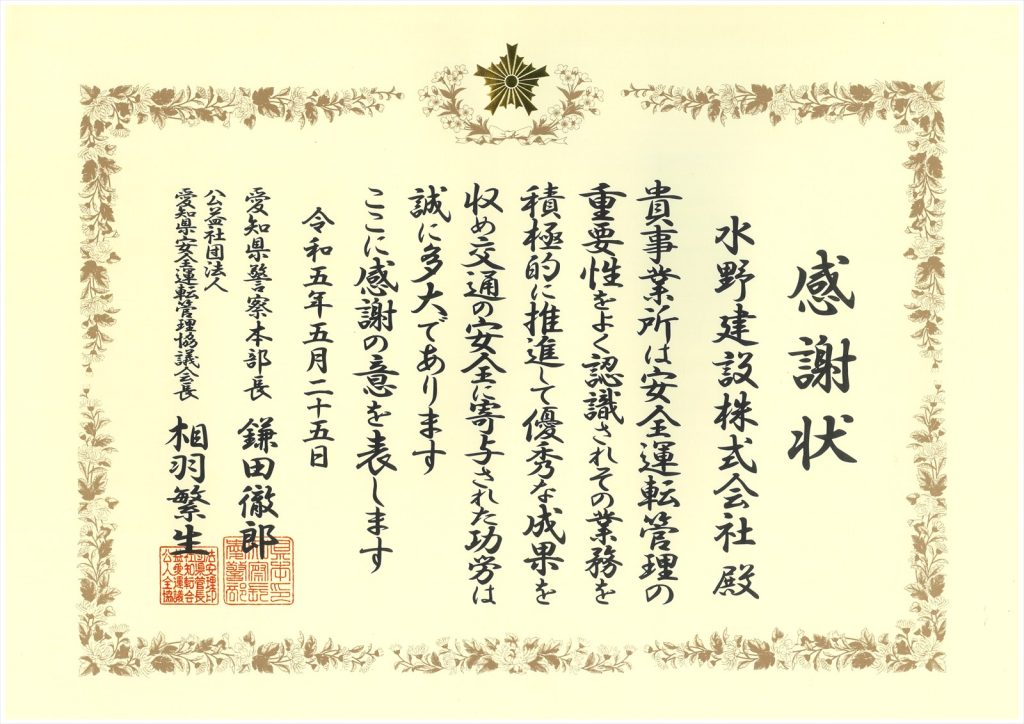 感謝状
水野建設株式会社 殿
貴事業所は安全運転管理の
重要性をよく認識されその業務を
積極的に推進して優秀な成果を
収め交通の安全に寄与された功労は
誠に多大であります
ここに感謝の意を表します
令和五年五月二十五日
愛知県警察本部長 鎌田徹郎
公益社団法人
愛知県安全運転管理協議会長 相羽繁生